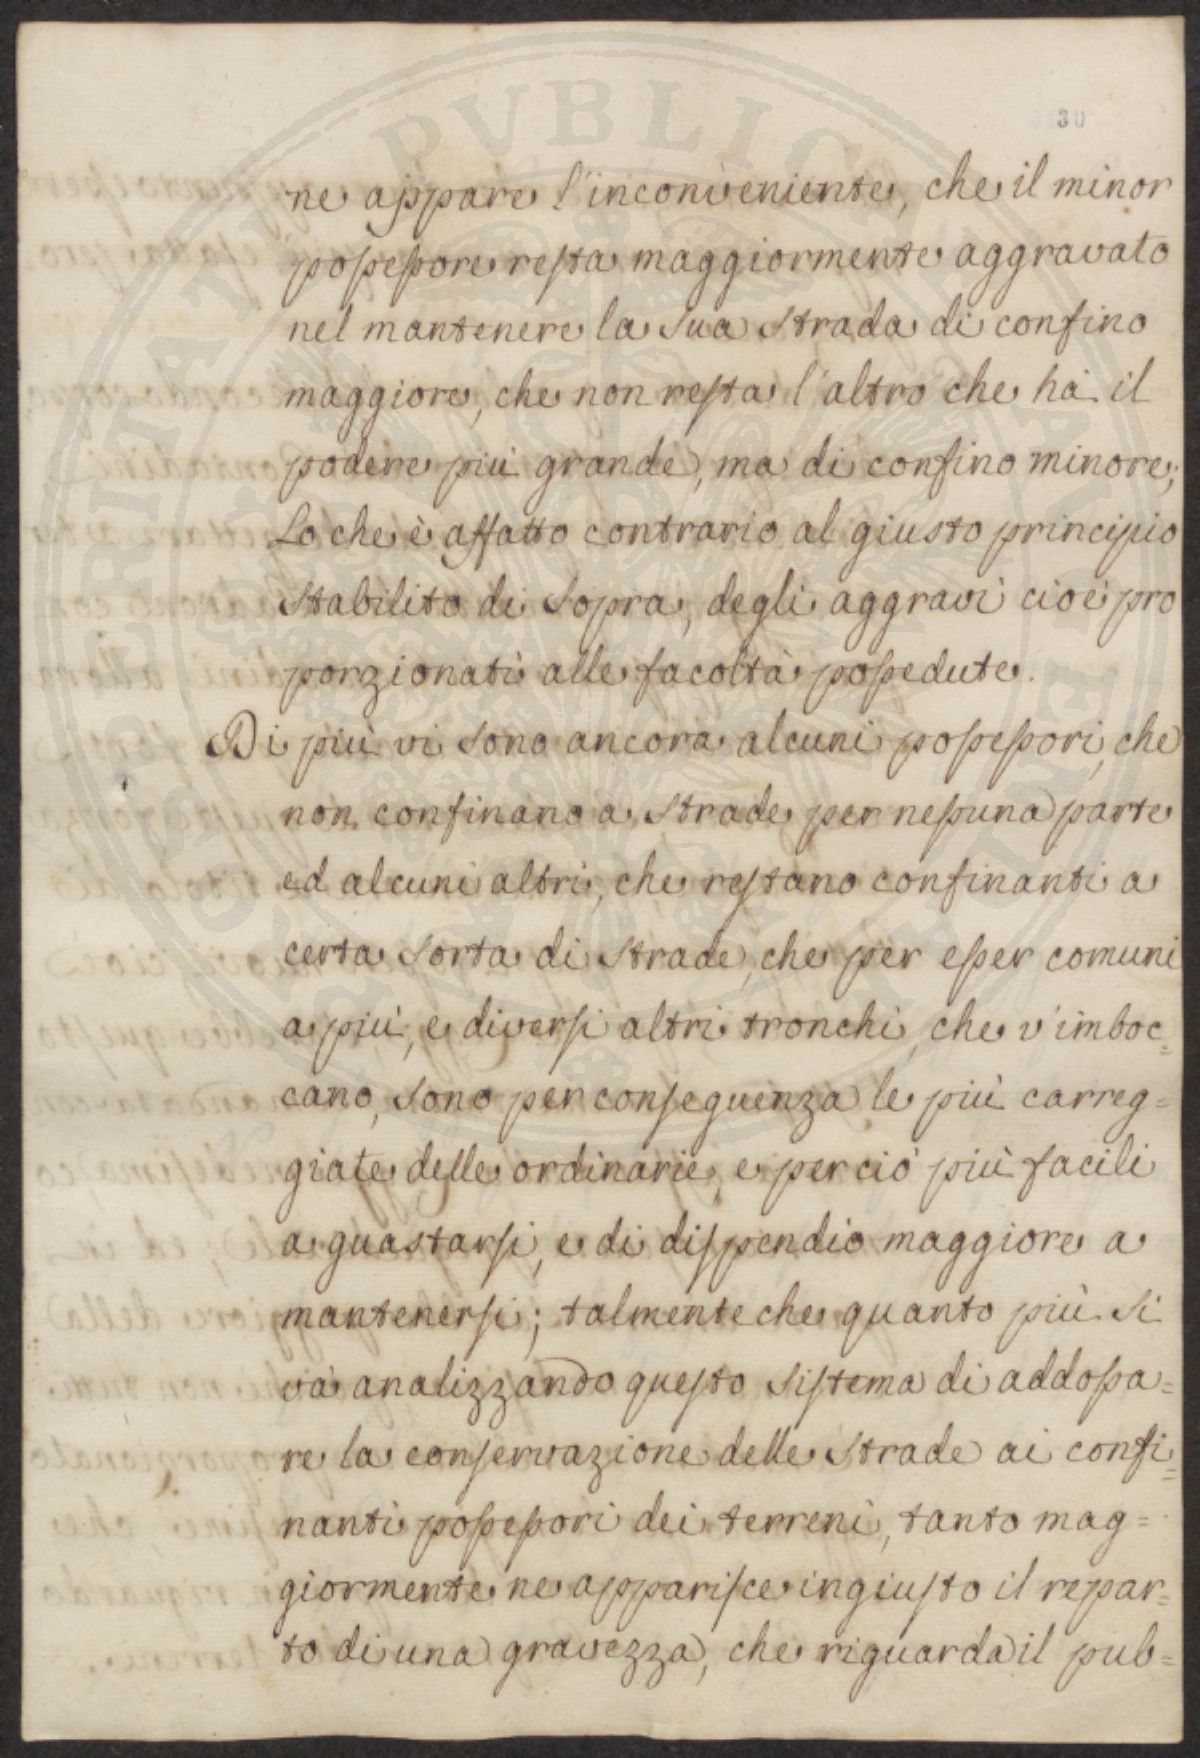 30
ne appare l'inconveniente, che il minor
possessore resta maggiormente aggravato
nel mantenere la sua strada di confino
maggiore, che non resta l'altro che hà il
podere più grande, ma di confino minore;
Lo che è affatto contrario al giusto principio
stabilito di sopra, degli aggravi cioè pro
porzionati alle facoltà possedute.
Di più vi sono ancora alcuni possessori, che
non confinano a strade per nessuna parte
ed alcuni altri, che restano confinanti a
certa sorta di strade, che per esser comuni
a più, e diversi altri tronchi, che v'imboc=
cano, sono per conseguenza le più carreg=
giate delle ordinarie, e perciò più facili
a guastarsi, e di dispendio maggiore a
mantenersi; talmente che quanto più si
và analizzando questo sistema di addossa=
re la conservazione delle strade ai confi=
nanti possessori dei terreni, tanto mag=
giormente ne apparisce ingiusto il repar=
to di una gravezza, che riguarda il pub=